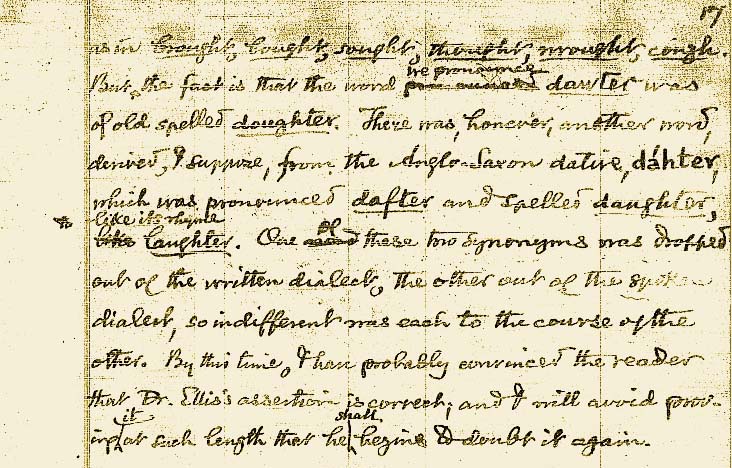 17
as in brought, bought, sought, thought, wrought, cough.
But the fact is that the word we pronounce dawter was
of old spelled doughter. There was, however, another word,
derived, I suppose, from the Anglo-Saxon dative, dáhter,
which was pronounced dafter and spelled daughter,
like its rhyme
like laughter. One of these two synonyms was dropped
out of the written dialect, the other out of the spoken
dialect, so indifferent was each to the course of the
other. By this time, I have probably convinced the reader
that Dr. Ellis's assertion is correct; and I will avoid prov-
ing it at such length that he shall begins to doubt it again.